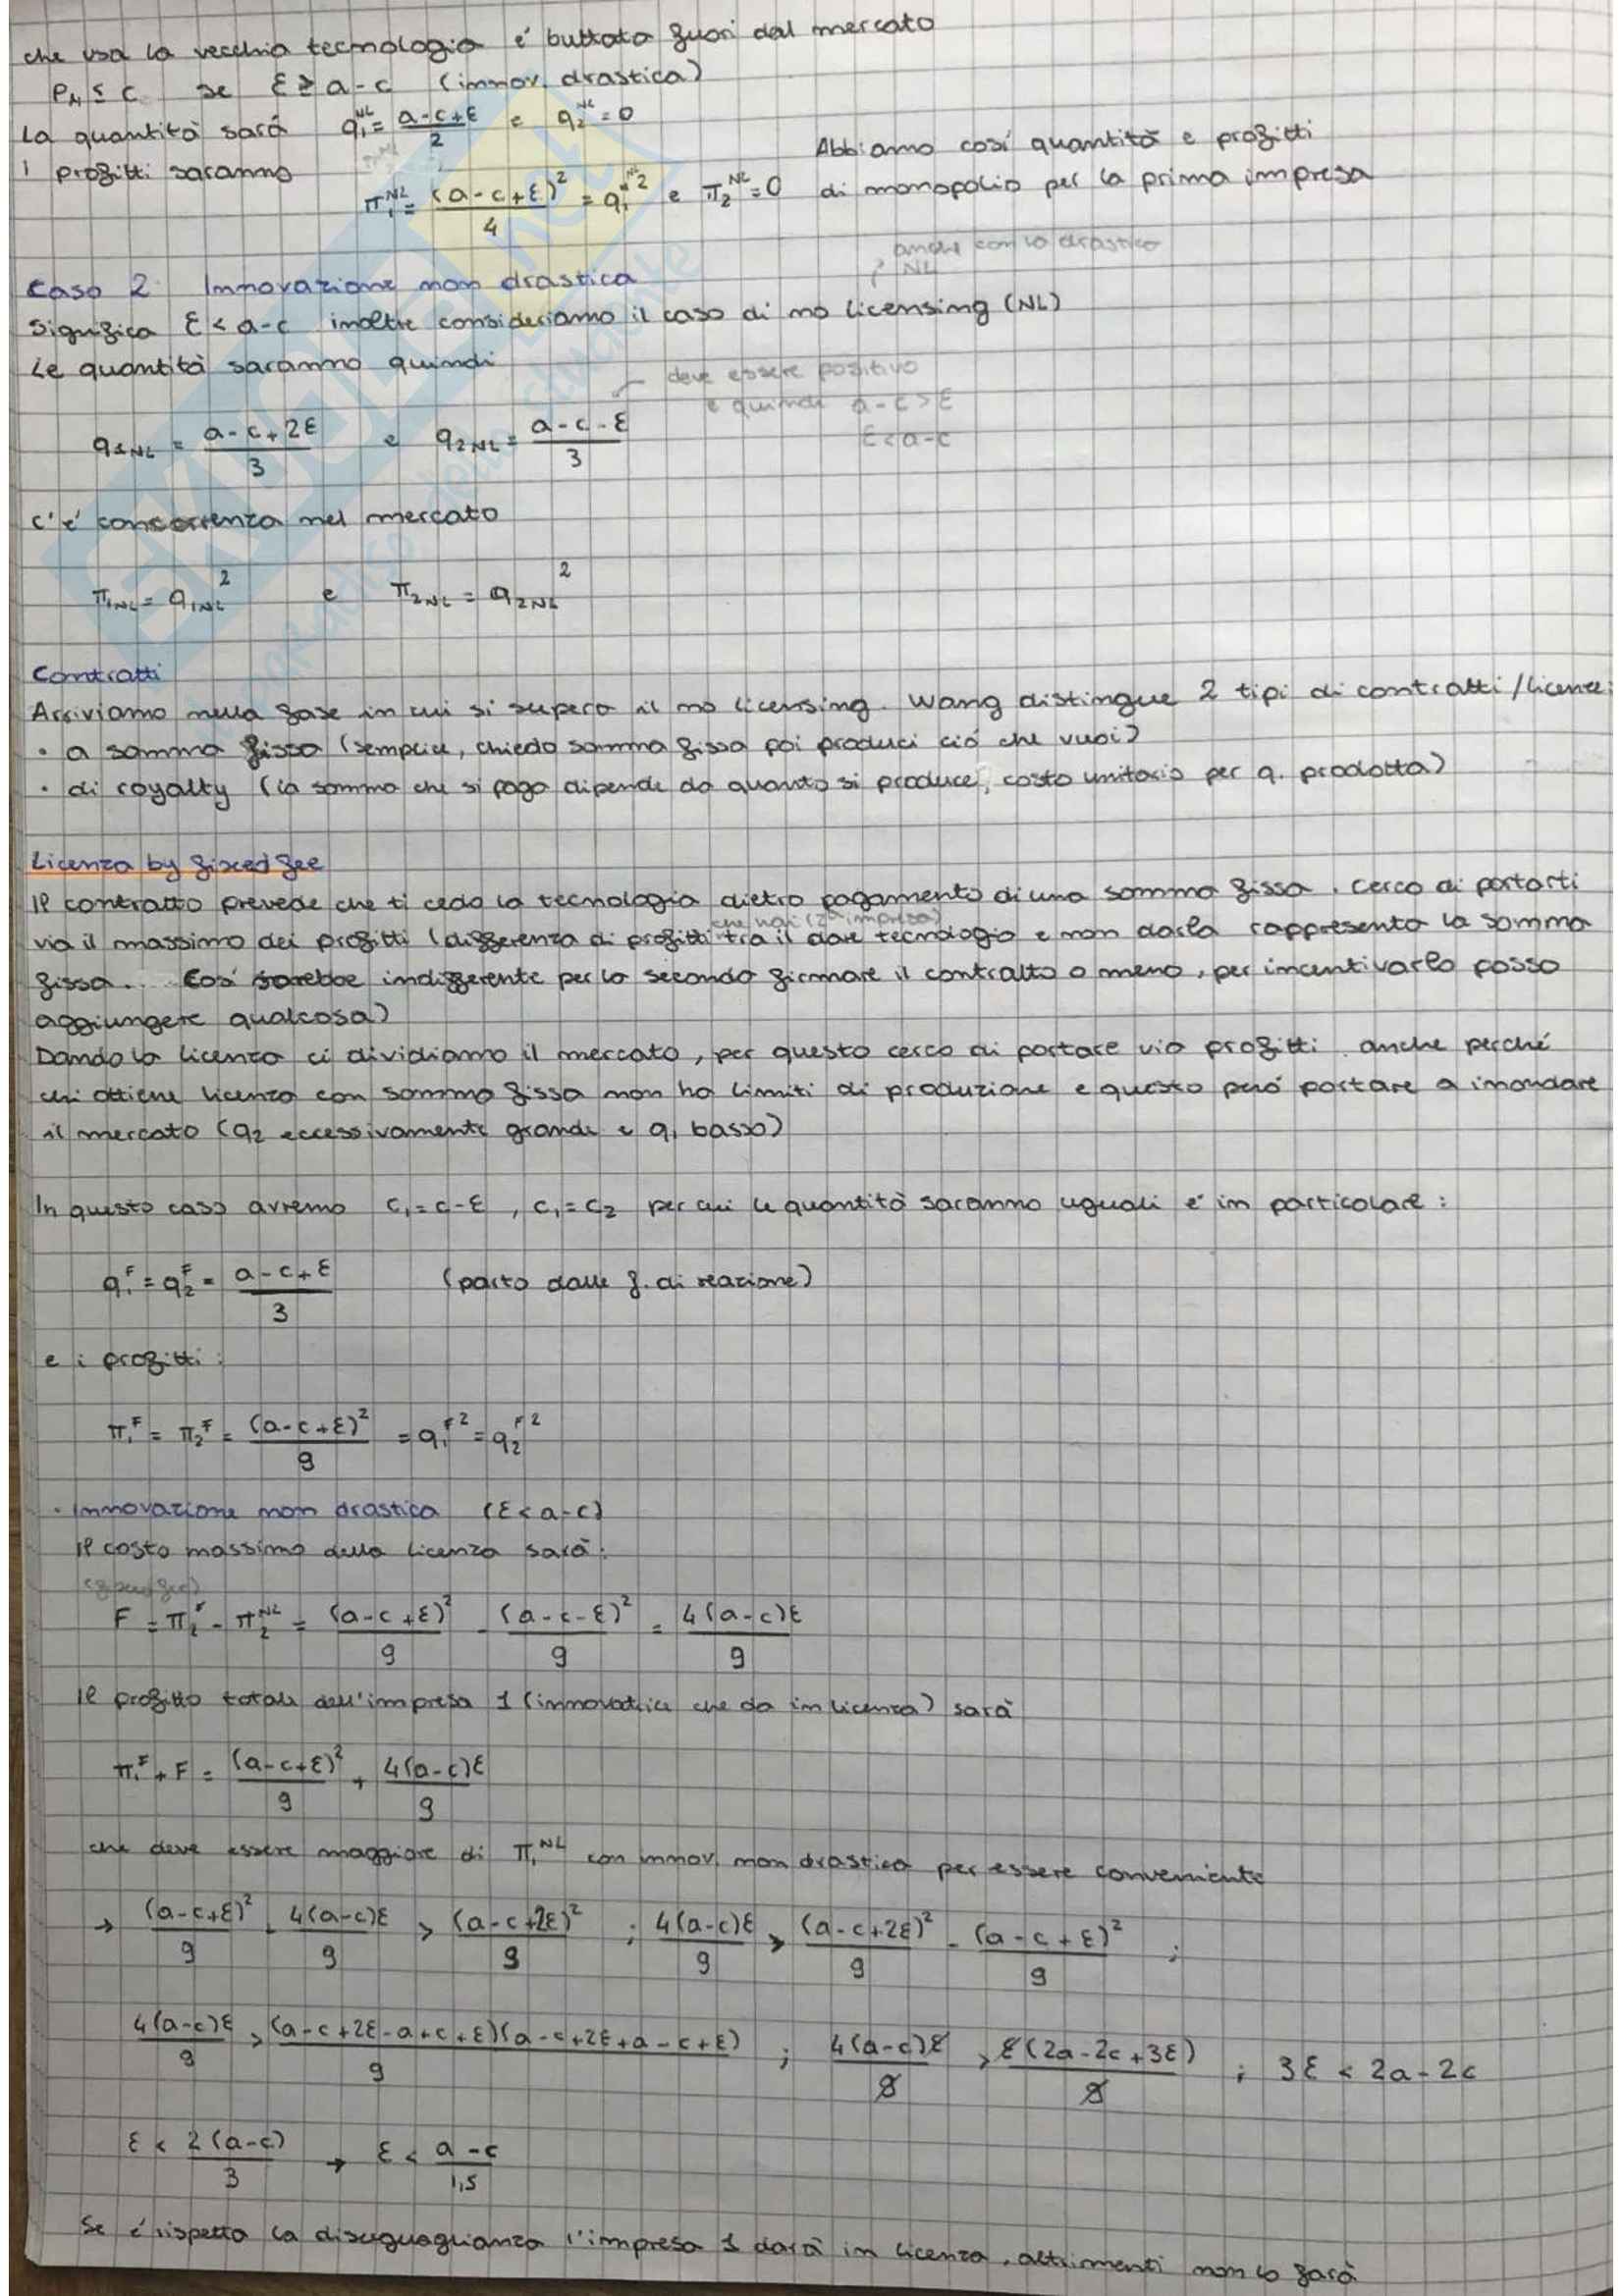 che usa la vecchia tecnologia é buttata fuori dal mercato
PM ≤ c se ε ≥ a-c (innov. drastica)
La quantità sará q₁^NL = (a-c+ε)/2 e q₂^NL = 0
I profitti saranno π₁^NL = (a-c+ε)²/4 = q₁^NL² e π₂^NL = 0
Abbiamo cosí quantità e profitti
di monopolio per la prima impresa
Caso 2 Innovazione non drastica
anche con la drastica
NL
Significa ε < a-c inoltre consideriamo il caso di no licensing (NL)
Le quantità saranno quindi
deve essere positivo
e quindi a-c > ε
ε < a-c
q1NL = (a-c+2ε)/3 e q2NL = (a-c-ε)/3
c'é concorrenza nel mercato
π1NL = q1NL² e π2NL = q2NL²
Contratti
Arriviamo nella fase in cui si supera il no licensing. Wang distingue 2 tipi di contratti/licenze:
• a somma fissa (semplice, chiedo somma fissa poi produci ció che vuoi)
• di royalty (la somma che si paga dipende da quanto si produce, costo unitario per q. prodotta)
Licenza by fixed fee
Il contratto prevede che ti cedo la tecnologia dietro pagamento di una somma fissa. Cerco di portarti
che hai (2ª impresa)
via il massimo dei profitti (differenza di profitti tra il dare tecnologia e non darla rappresenta la somma
fissa. Cosí sarebbe indifferente per la seconda firmare il contratto o meno, per incentivarlo posso
aggiungere qualcosa)
Dando la licenza ci dividiamo il mercato, per questo cerco di portare via profitti. anche perché
chi ottiene licenza con somma fissa non ha limiti di produzione e questo peró portare a inondare
il mercato (q₂ eccessivamente grande e q₁ basso)
In questo caso avremo c₁ = c-ε, c₁ = c₂ per cui le quantità saranno uguali e in particolare:
q₁^F = q₂^F = (a-c+ε)/3 (parto dalle f. di reazione)
e i profitti:
π₁^F = π₂^F = (a-c+ε)²/9 = q₁^F² = q₂^F²
• Innovazione non drastica (ε < a-c)
Il costo massimo della licenza sarà:
(fixed fee)
F = π₂^F - π₂^NL = (a-c+ε)²/9 - (a-c-ε)²/9 = 4(a-c)ε/9
Il profitto totale dell'impresa 1 (innovatrice che da in licenza) sarà
π₁^F + F = (a-c+ε)²/9 + 4(a-c)ε/9
che deve essere maggiore di π₁^NL con innov. non drastica per essere conveniente
→ (a-c+ε)²/9 - 4(a-c)ε/9 > (a-c+2ε)²/9 ; 4(a-c)ε/9 > (a-c+2ε)²/9 - (a-c+ε)²/9 ;
4(a-c)ε/9 > (a-c+2ε-a+c+ε)(a-c+2ε+a-c+ε)/9 ; 4(a-c)ε/9 > ε(2a-2c+3ε)/9 ; 3ε < 2a-2c
ε < 2(a-c)/3 → ε < (a-c)/1,5
Se é rispetta la disuguaglianza l'impresa 1 darà in licenza, altrimenti non lo fará